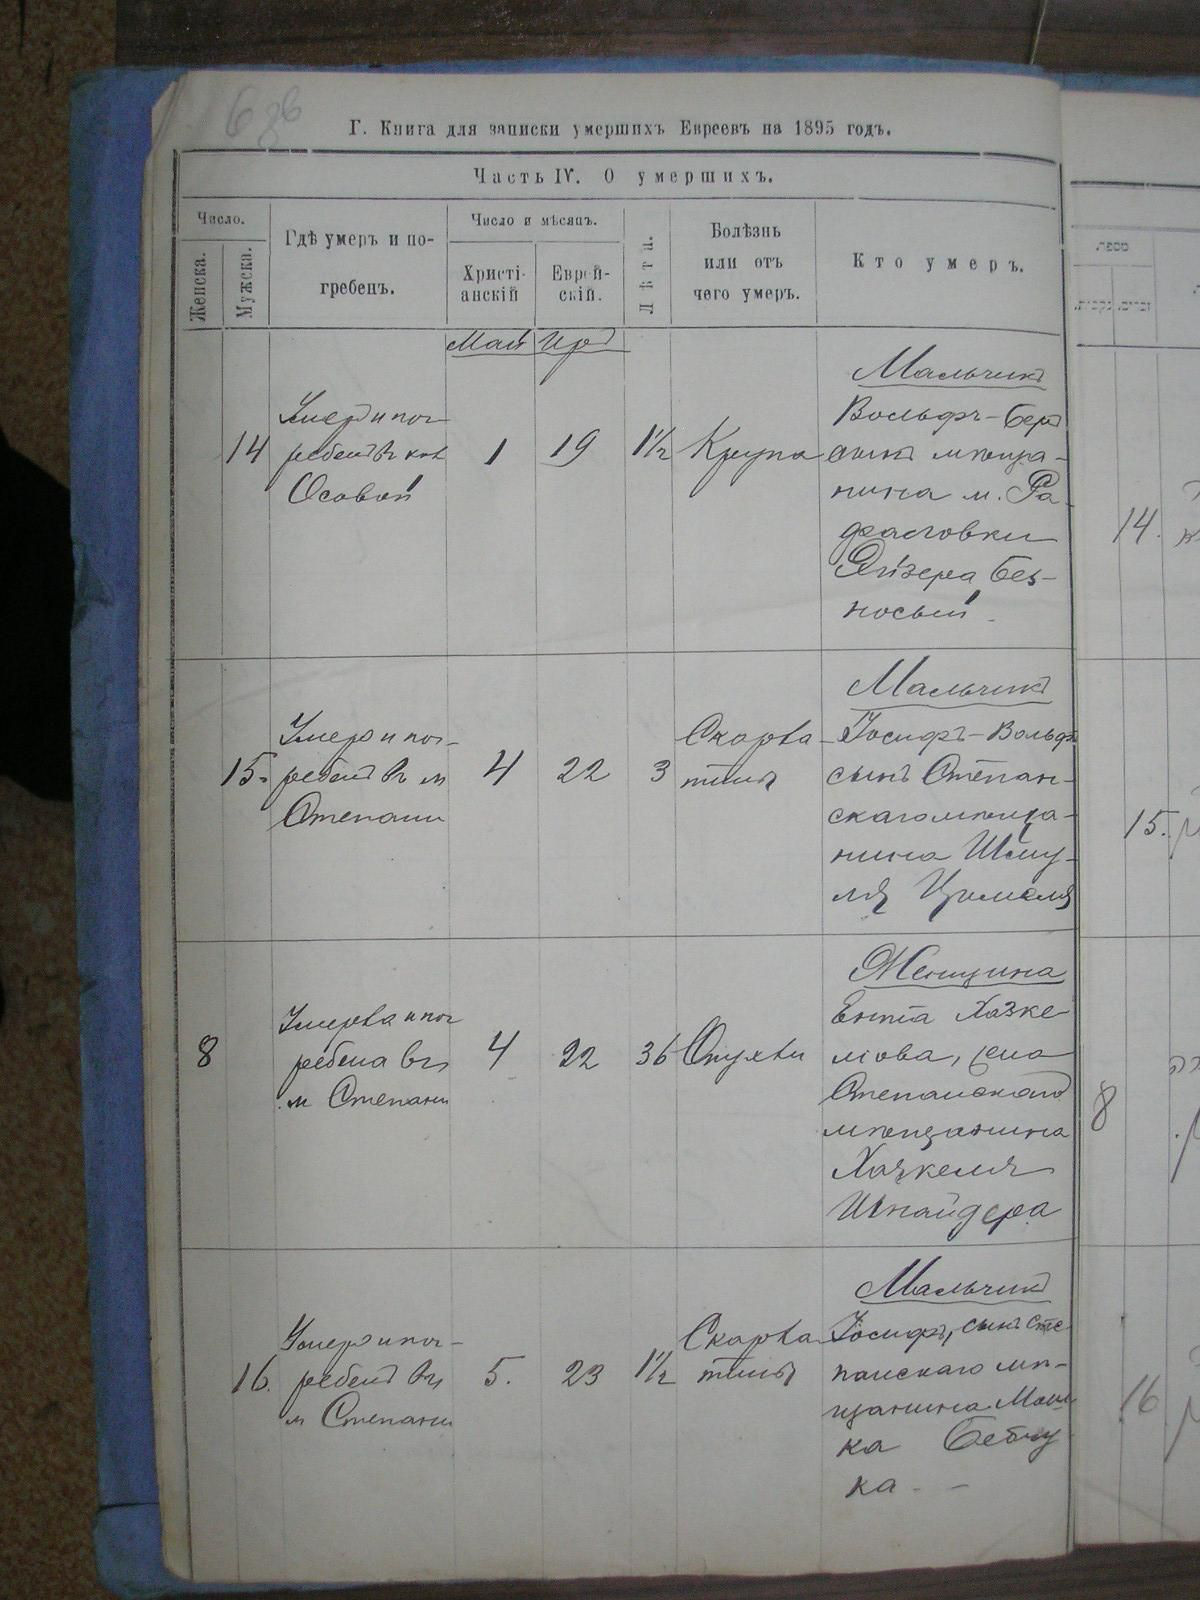 Г. Книга для записки умершихъ Евреевъ на 1895 годъ.
Часть IV. О умершихъ.
Число.
Женска.
Мужска.
Гдѣ умеръ и по-
гребенъ.
Число и мѣсяцъ.
Христі-
анскій
Еврей-
скій.
Лѣта.
Болѣзнь
или отъ
чего умеръ.
Кто умеръ.
מספר.
נקבות.
זכרים.
Май
14
Умеръ и пог-
ребенъ въ
Осовой
1
19
1½
Крупа
Мальчикъ
Вольфъ-Беръ
сынъ мѣща-
нина м. Ра-
фаловки
Айзера Без-
носый
14.
15.
Умеръ и пог-
ребенъ въ м
Степани
4
22
3
Скарла-
тина
Мальчикъ
Іосифъ-Вольфъ
сынъ Степан-
скаго мѣща-
нина Шму-
ля
15.
8
Умерла и пог
ребена въ
м Степани
4
22
36
Опухли
Женщина
Ента Хазке-
лова, жена
Степанскаго
мѣщанина
Хацкеля
Шнайдера
8
16.
Умеръ и пог-
ребенъ въ
м Степани
5.
23
1½
Скарла-
тина
Мальчикъ
Іосифъ, сынъ Сте-
панскаго мѣ-
щанина Мош-
ка Бебчу
ка - -
16